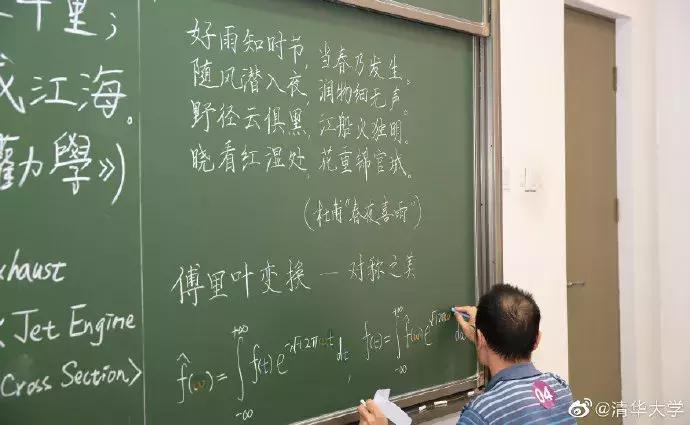 千里；
成江海。
劝力學》)
xhaust
Jet Engine
Cross Section>
好雨知时节，当春乃发生。
随风潜入夜，润物细无声。
野径云俱黑，江船火独明。
晓看红湿处，花重锦官城。
(杜甫"春夜喜雨")
傅里叶变换 — 对称之美
f̂(ω) = ∫_{-∞}^{+∞} f(t) e^{-√-1 2πωt} dt, f(t) = ∫_{-∞}^{+∞} f̂(ω) e^{√-1 2πω
04
@清华大学